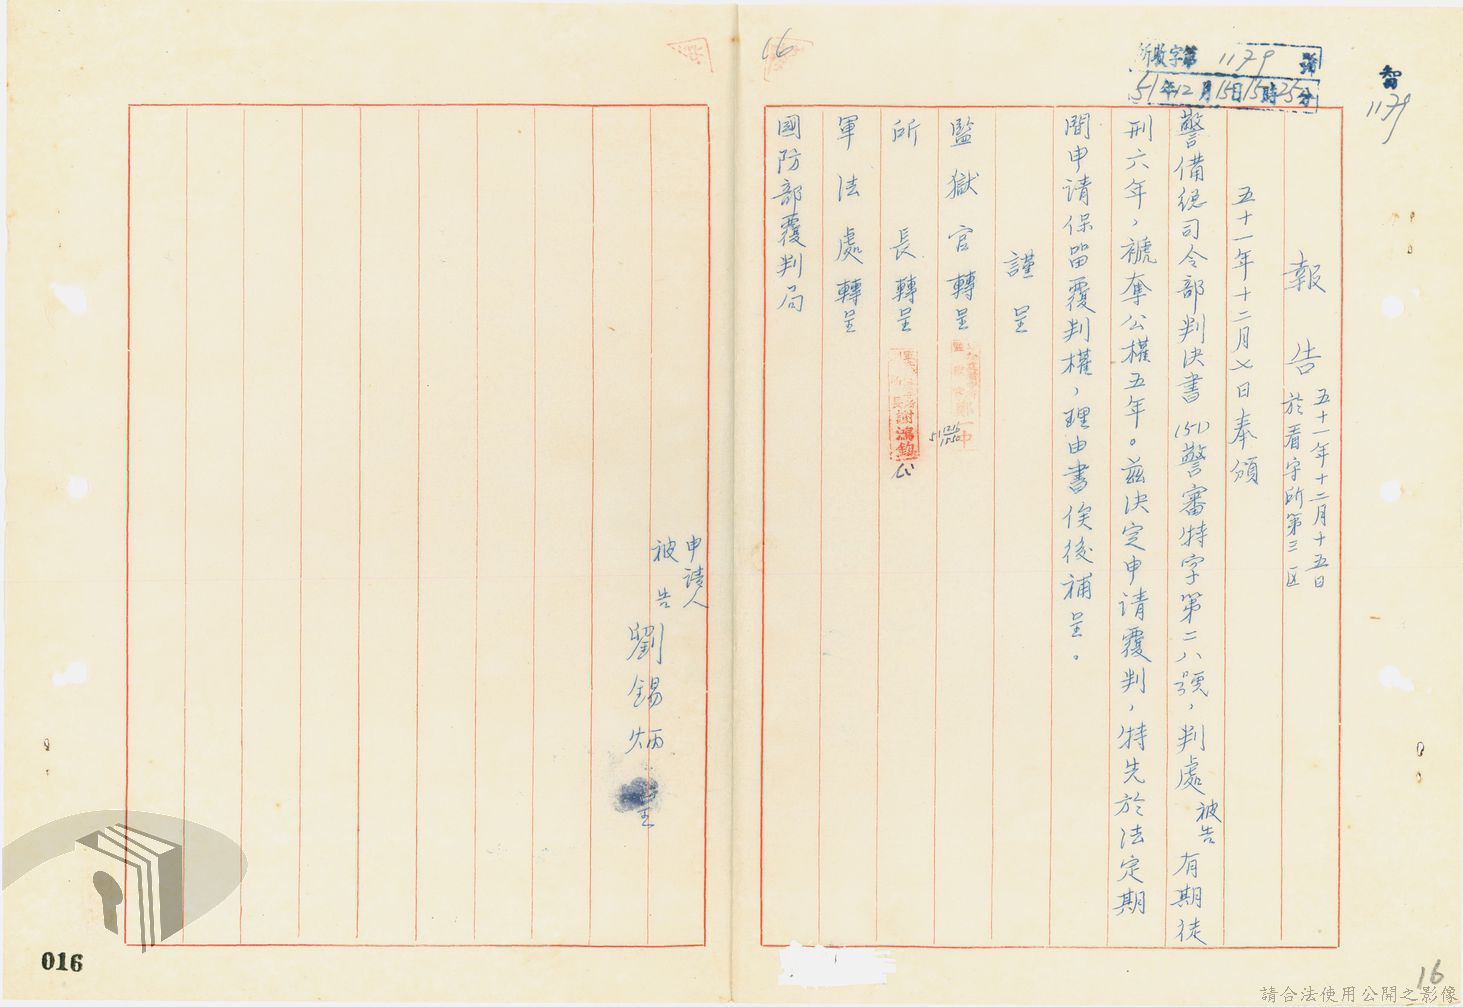 智
1179
所收字第1179號
51年12月15日15時25分
16
報告
五十一年十二月十五日
於看守所第三区
五十一年十二月七日奉頒
警備總司令部判決書(51)警審特字第二八號，判處被告有期徒
刑六年，褫奪公權五年。茲決定申请覆判，特先於法定期
間申请保留覆判權，理由書俟後補呈。
謹呈
監獄官轉呈
所長轉呈
謝鴻
軍法處轉呈
國防部覆判局
申請人
被告
劉錫炳
呈
016
16
請合法使用公開之影像